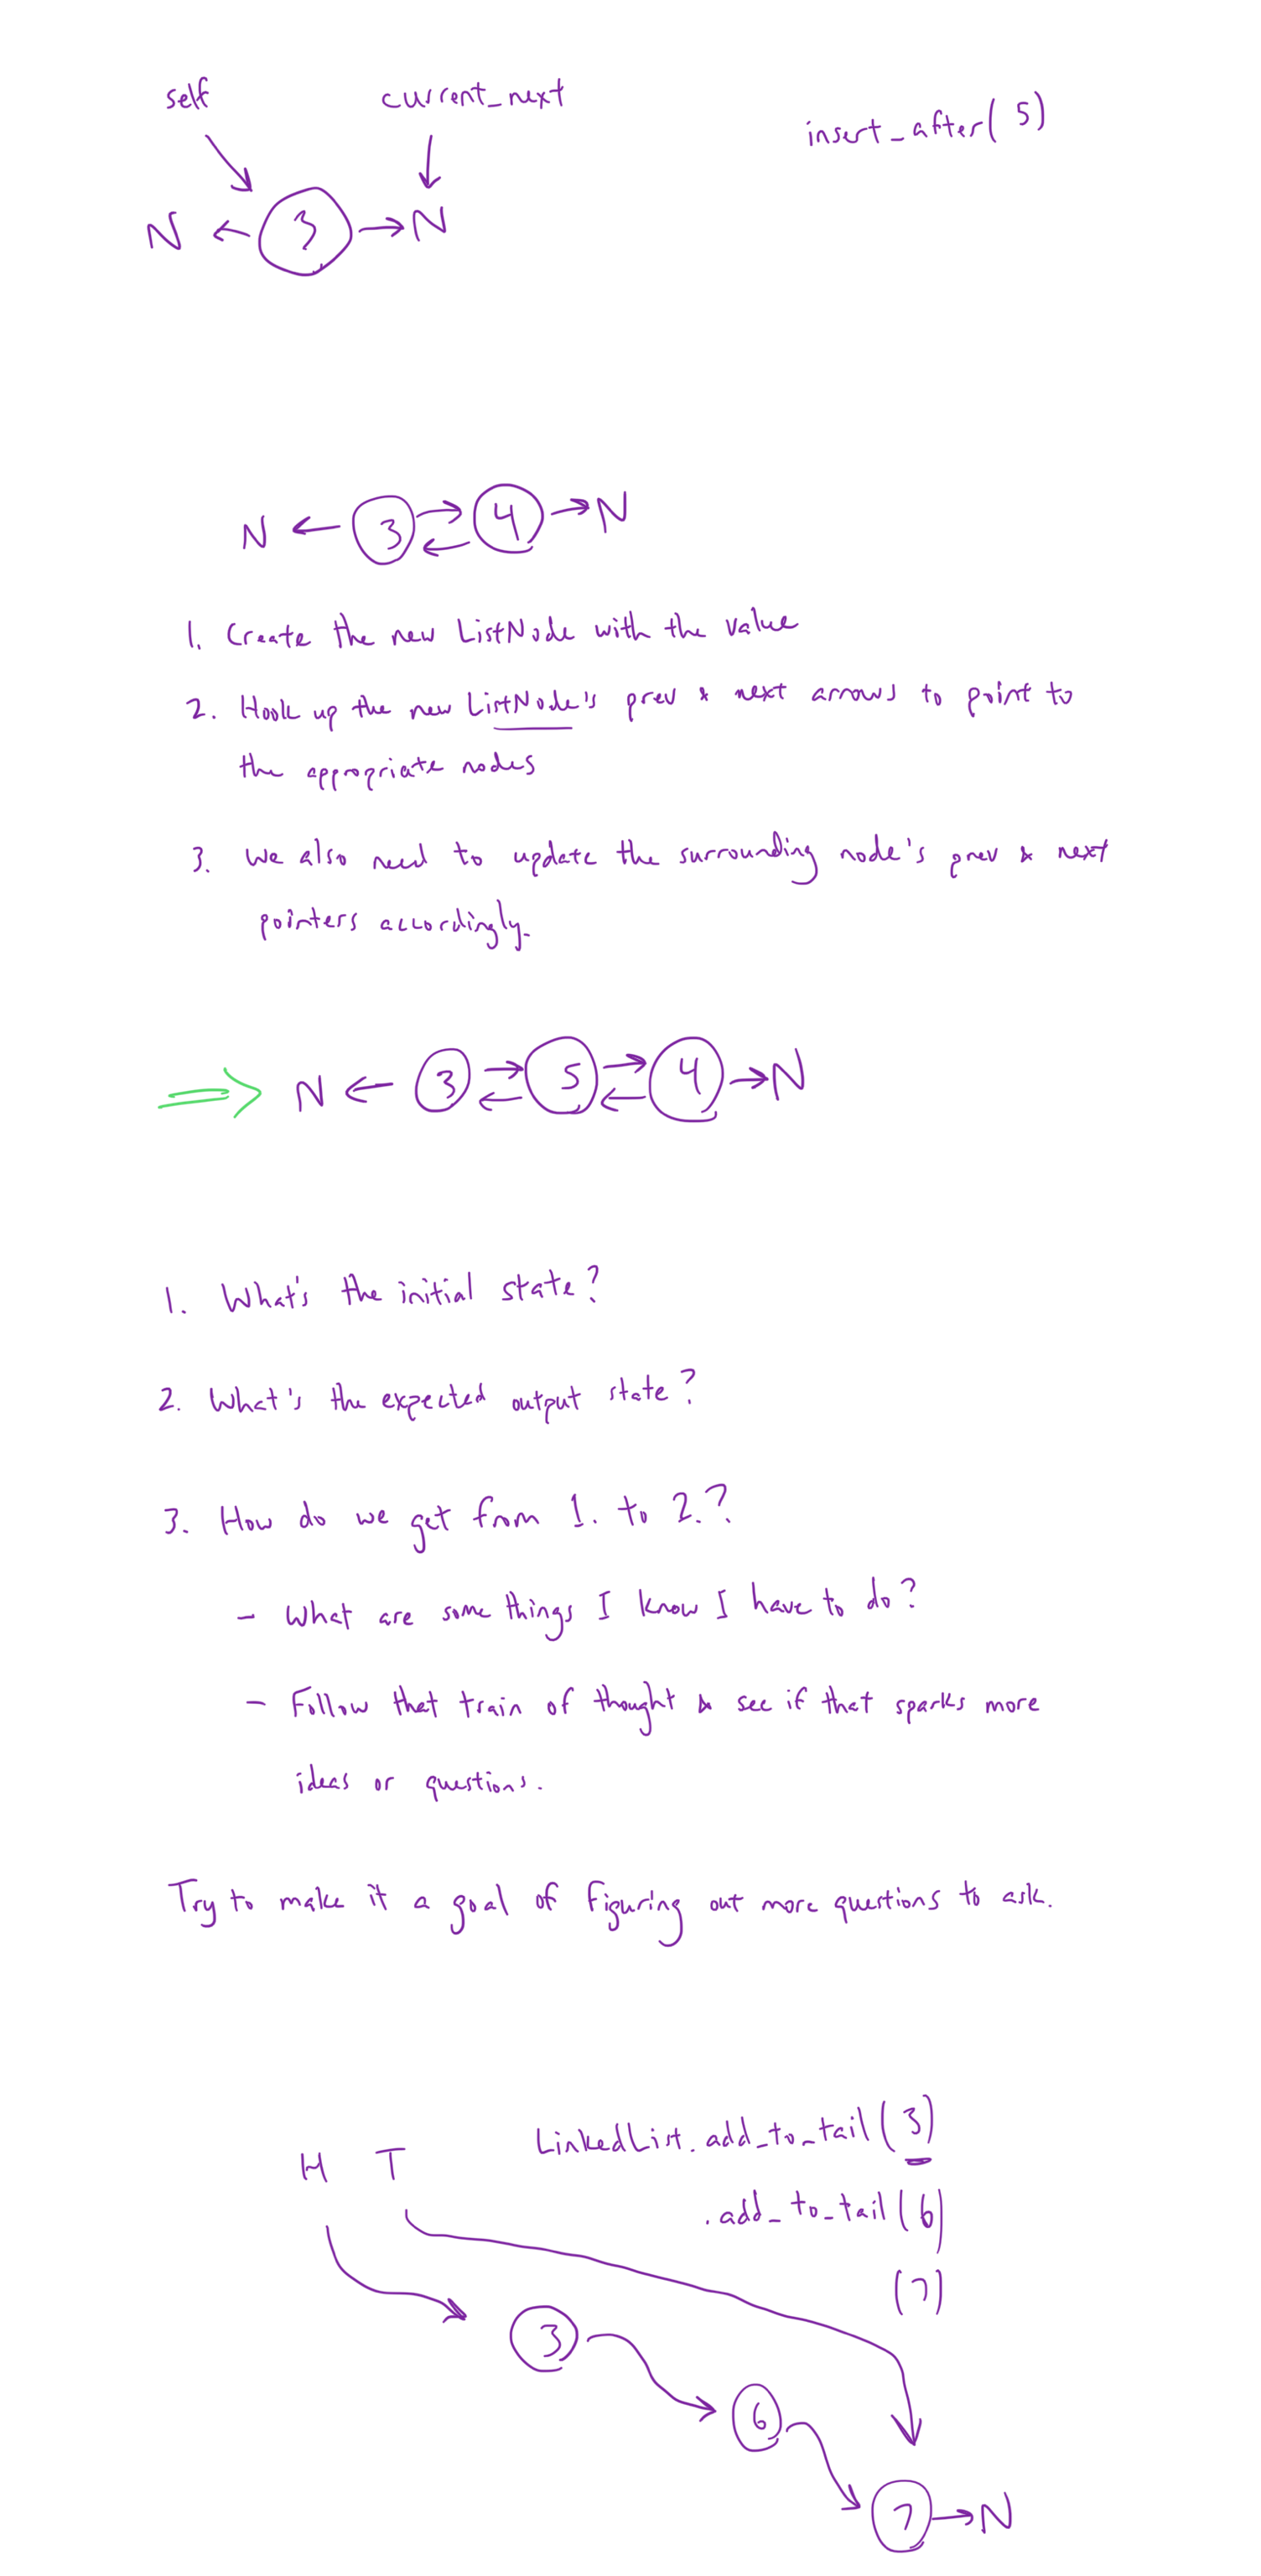 self current_next insert_after(5)
N 3 N
N 3 4 N
1. Create the new ListNode with the value
2. Hook up the new ListNode's prev & next arrows to point to
the appropriate nodes
3. We also need to update the surrounding node's prev & next
pointers accordingly.
N 3 5 4 N
1. What's the initial state?
2. What's the expected output state?
3. How do we get from 1. to 2.?
- What are some things I know I have to do?
- Follow that train of thought & see if that sparks more
ideas or questions.
Try to make it a goal of figuring out more questions to ask.
H T LinkedList.add_to_tail(3)
.add_to_tail(6)
(7)
3
6
7 N